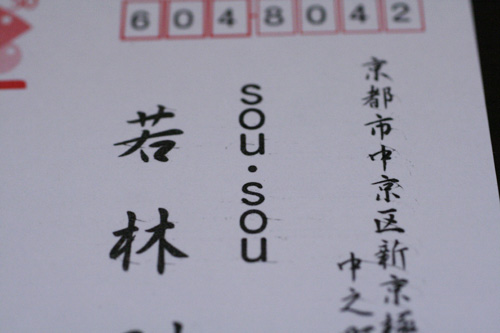 6048042
京都市中京区新京極
中之
sou·sou
若林